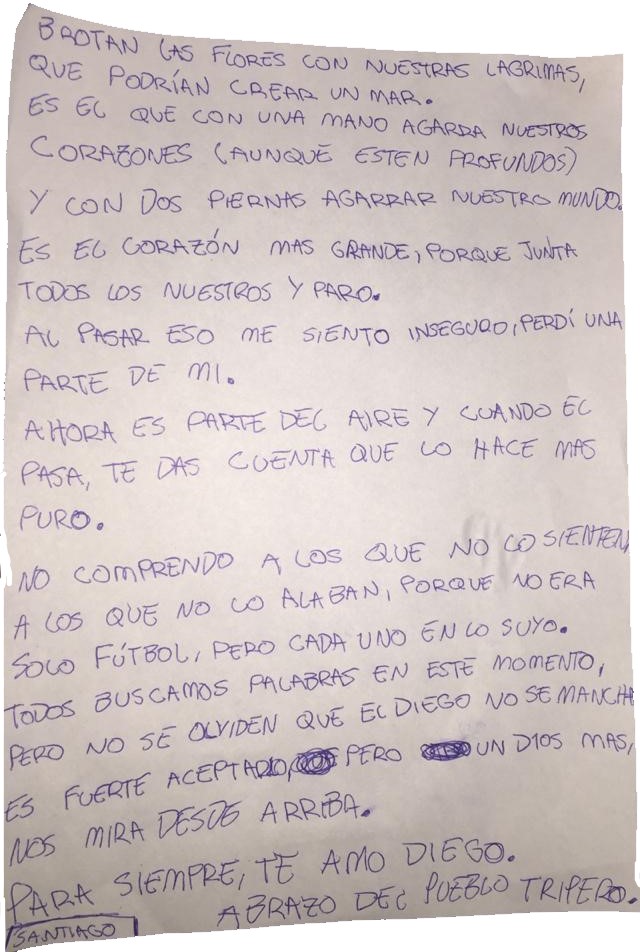 BROTAN LAS FLORES CON NUESTRAS LAGRIMAS,
QUE PODRÍAN CREAR UN MAR.
ES EL QUE CON UNA MANO AGARRA NUESTROS
CORAZONES (AUNQUE ESTEN PROFUNDOS)
Y CON DOS PIERNAS AGARRAR NUESTRO MUNDO.
ES EL CORAZÓN MAS GRANDE, PORQUE JUNTA
TODOS LOS NUESTROS Y PARO.
AL PASAR ESO ME SIENTO INSEGURO, PERDÍ UNA
PARTE DE MI.
AHORA ES PARTE DEL AIRE Y CUANDO EL
PASA, TE DAS CUENTA QUE LO HACE MAS
PURO.
NO COMPRENDO A LOS QUE NO LO SIENTEN
A LOS QUE NO LO ALABAN, PORQUE NO ERA
SOLO FÚTBOL, PERO CADA UNO EN LO SUYO.
TODOS BUSCAMOS PALABRAS EN ESTE MOMENTO,
PERO NO SE OLVIDEN QUE EL DIEGO NO SE MANCHA
ES FUERTE ACEPTARLO, PERO UN DIOS MAS,
NOS MIRA DESDE ARRIBA.
PARA SIEMPRE, TE AMO DIEGO.
ABRAZO DEL PUEBLO TRIPERO.
SANTIAGO